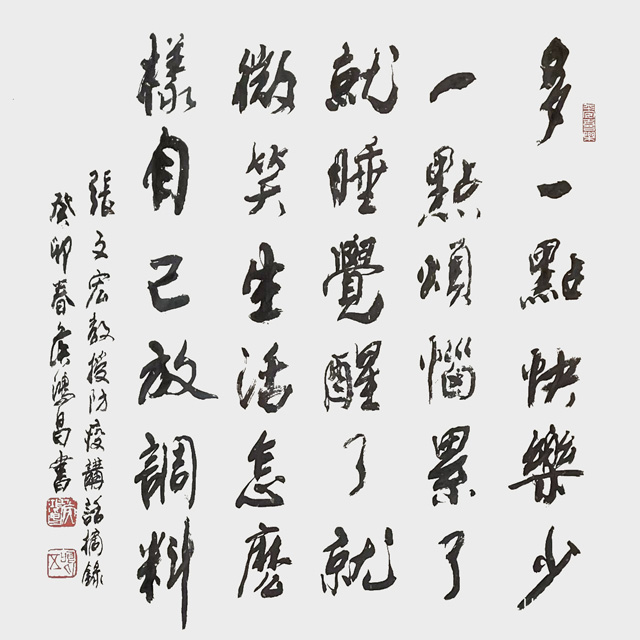 多一點快樂少
一點煩惱累了
就睡覺醒了就
微笑生活怎麼
樣自己放調料
張文宏教授防疫講話摘錄
癸卯春侯鴻昌書